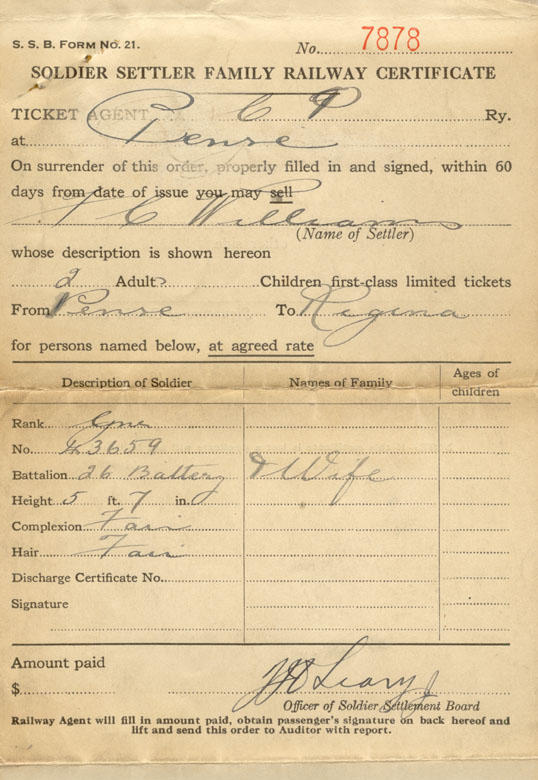 S. S. B. FORM NO. 21.
No. 7878
SOLDIER SETTLER FAMILY RAILWAY CERTIFICATE
TICKET AGENT C P Ry.
at Pense
On surrender of this order, properly filled in and signed, within 60
days from date of issue you may sell
C Williams
(Name of Settler)
whose description is shown hereon
2 Adults Children first-class limited tickets
From Pense To Regina
for persons named below, at agreed rate
Description of Soldier Names of Family Ages of children
Rank Gnr
No. 43659
Battalion 26 Battery & Wife
Height 5 ft. 7 in.
Complexion Fair
Hair Fair
Discharge Certificate No.
Signature
Amount paid
$
Officer of Soldier Settlement Board
Railway Agent will fill in amount paid, obtain passenger's signature on back hereof and
lift and send this order to Auditor with report.